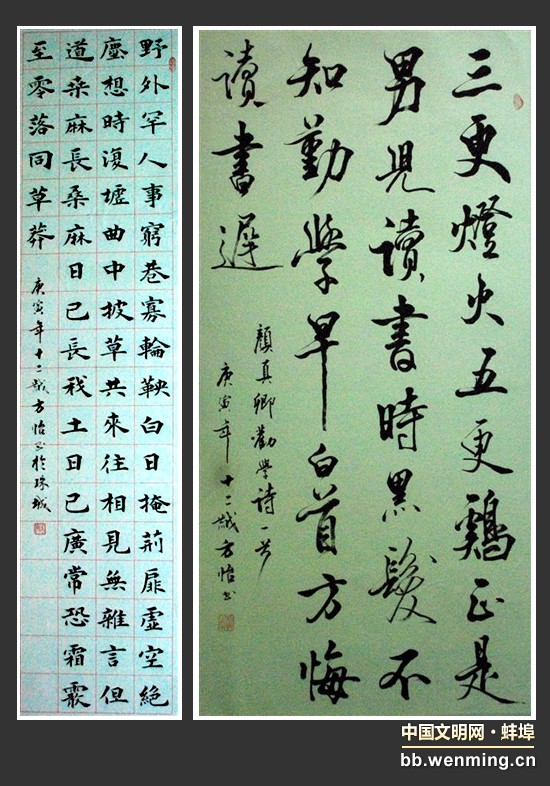 野外罕人事窮巷寡輪鞅白日掩荊扉虛空絕
塵想時復墟曲中披草共來往相見無雜言但
道桑麻長桑麻日已長我土日已廣常恐霜霰
至零落同草莽 庚寅年十二歲方怡書於珠城
三更燈火五更鷄正是
男兒讀書時黑髮不
知勤學早白首方悔
讀書遲
顏真卿勸學詩一首
庚寅年十二歲方怡書
中国文明网·蚌埠
bb.wenming.cn